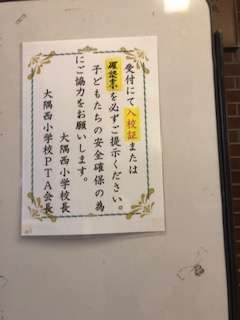 受付にて入校証または
確認票を必ずご提示ください。
子どもたちの安全確保の為
にご協力をお願いします。
大隅西小学校長
大隅西小学校PTA会長